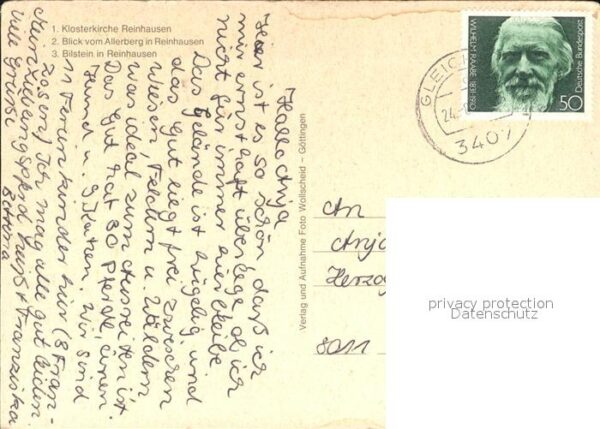 1. Klosterkirche Reinhausen
2. Blick vom Allerberg in Reinhausen
3. Bilstein in Reinhausen
Hallo Anja
Hier ist es so schön, daß ich
mir ernsthaft überlege ob ich
nicht für immer hier bleibe.
Das Gelände ist hügelig und
das gut liegt frei zwischen
Wiesen, Feldern u. Wäldern
was ideal zum Ausreiten ist
Das Gut hat 30 Pferde, einen
Hund u. 9 Katzen. Wir sind
Ferienkinder hier (3 Fran-
zosen) Ich mag alle gut leiden
Mein Lieblingspferd heißt Franziska
Viele Grüße
Verlag und Aufnahme Foto Wollscheid – Göttingen
WILHELM RAABE 1831-1910
Deutsche Bundespost
50
GLEICH
24.
3407
An
Anja
Herzog
5011
privacy protection
Datenschutz